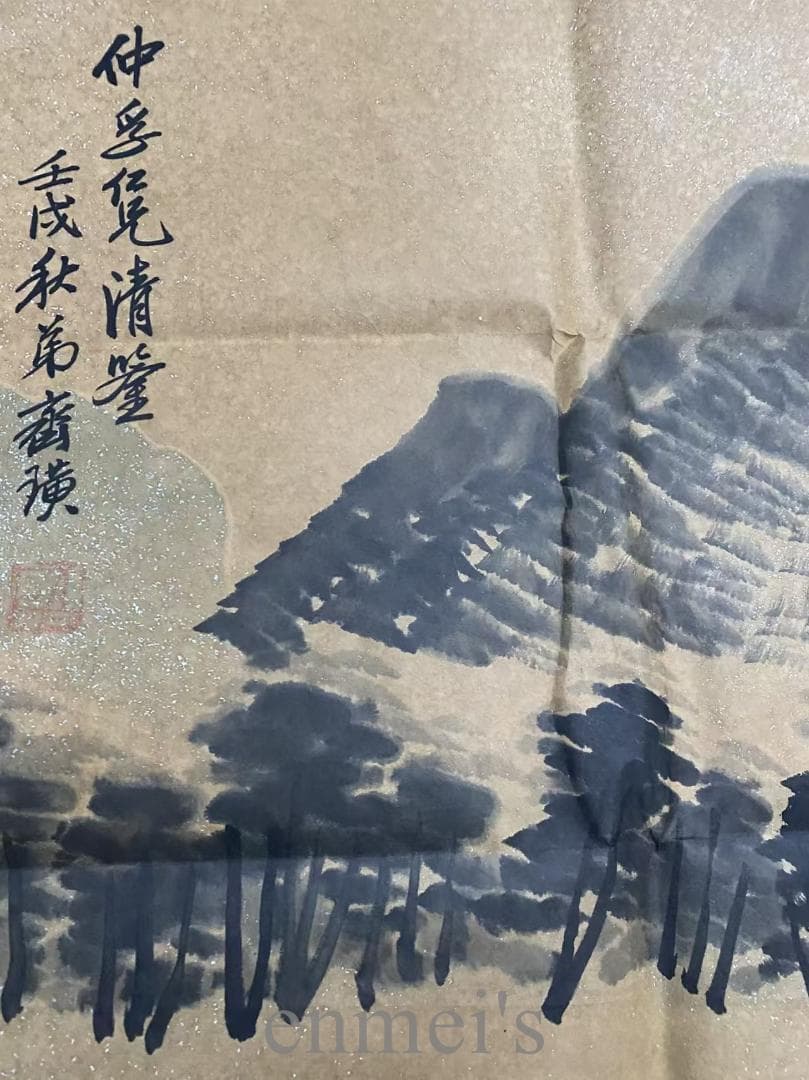 仲孚仁兄清鑒
壬戌秋弟齊璜
enmei's